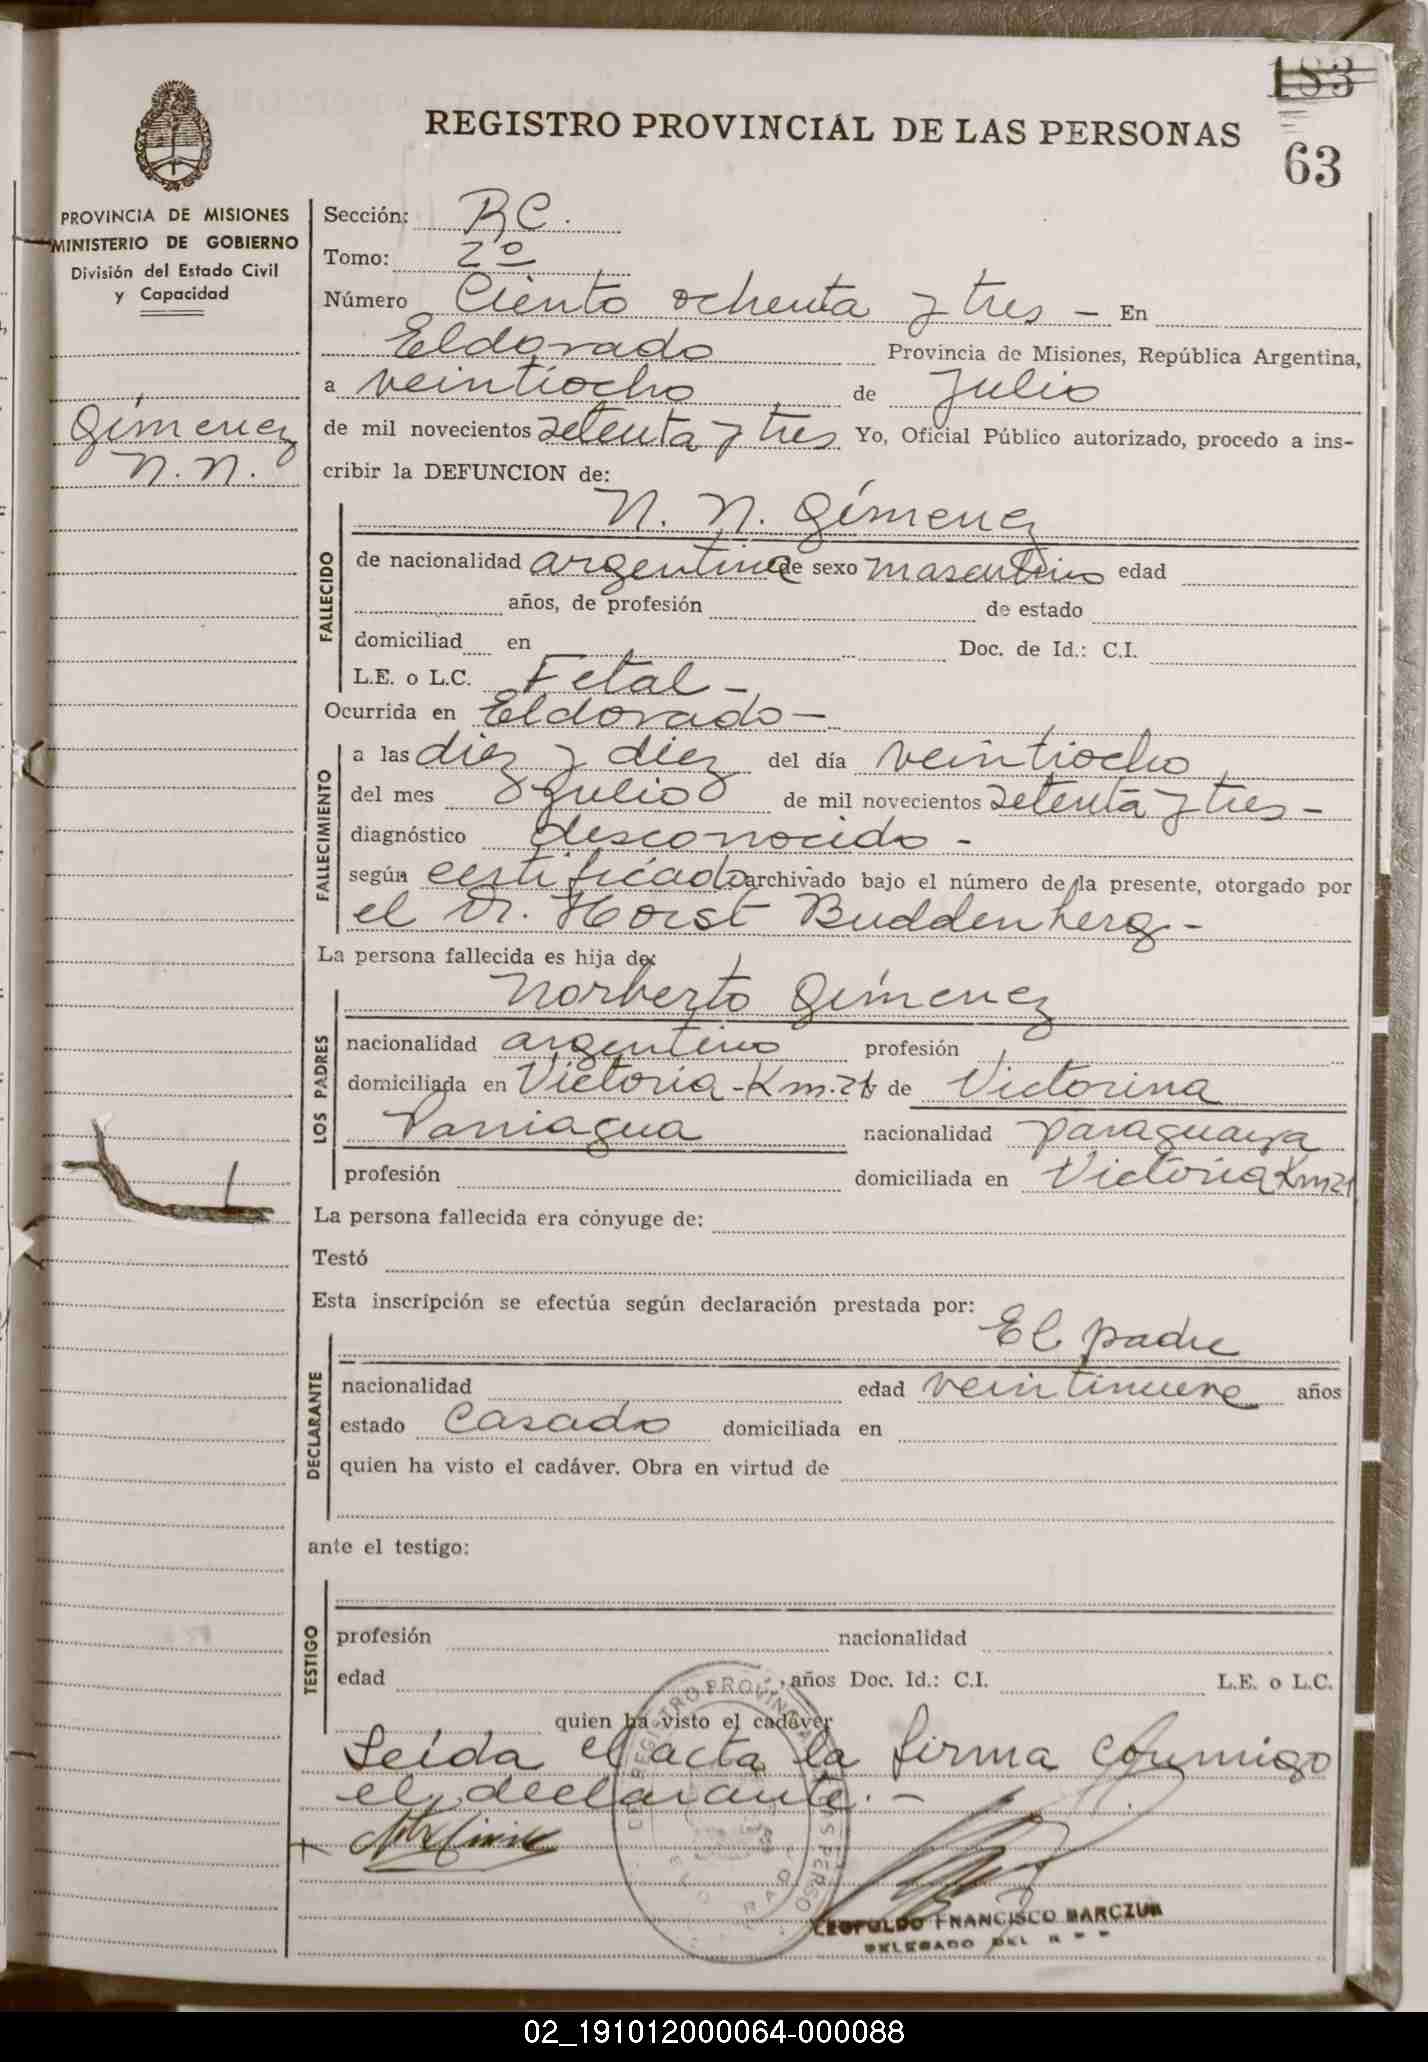 183
REGISTRO PROVINCIAL DE LAS PERSONAS
63
PROVINCIA DE MISIONES
MINISTERIO DE GOBIERNO
División del Estado Civil
y Capacidad
Gimenez
N. N.
Sección: RC.
Tomo: 2º
Número Ciento ochenta y tres - En
Eldorado Provincia de Misiones, República Argentina,
a veintiocho de Julio
de mil novecientos setenta y tres Yo, Oficial Público autorizado, procedo a ins-
cribir la DEFUNCION de:
N. N. Gimenez
FALLECIDO
de nacionalidad argentina de sexo masculino edad
años, de profesión de estado
domiciliad en Doc. de Id.: C.I.
L.E. o L.C. Fetal -
Ocurrida en Eldorado -
FALLECIMIENTO
a las diez y diez del día veintiocho
del mes Julio de mil novecientos setenta y tres -
diagnóstico desconocido -
según certificado archivado bajo el número de la presente, otorgado por
el Dr. Horst Buddenberg -
La persona fallecida es hija de:
Norberto Gimenez
LOS PADRES
nacionalidad argentino profesión
domiciliada en Victoria - Km. de Victorina
Paniagua nacionalidad paraguaya
profesión domiciliada en Victoria Km 21
La persona fallecida era cónyuge de:
Testó
Esta inscripción se efectúa según declaración prestada por:
El padre
DECLARANTE
nacionalidad edad veintinueve años
estado casado domiciliada en
quien ha visto el cadáver. Obra en virtud de
ante el testigo:
TESTIGO
profesión nacionalidad
edad años Doc. Id.: C.I. L.E. o L.C.
quien ha visto el cadáver
Leída el acta la firma conmigo
el declarante. -
LEOPOLDO FRANCISCO BARCZUK
DELEGADO DEL R P P
02_191012000064-000088